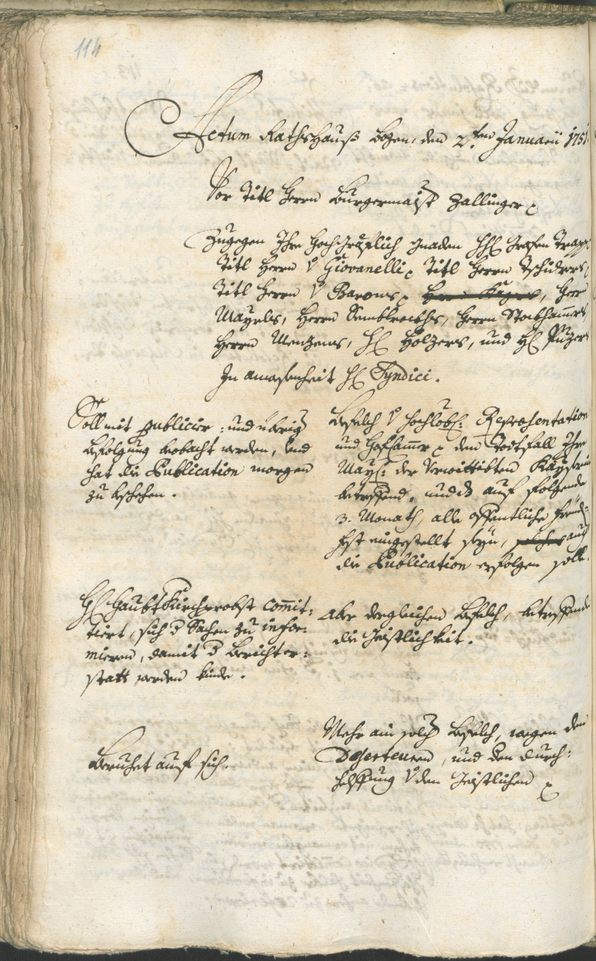 114
Actum Rathshauß Bozen, den 2ten Januarii 1751
Vor Titl Herrn Burgermaister Zallinger
Zugegen Ihro Hochgräflich Gnaden Grafen Trapp
Titl Herrn v Giovanelli, Titl Herrn Tschiders,
Titl Herrn v Barons, Herr
Mayrls, Herrn Sembkrechts, Herrn Stockhamers
Herrn Menzens, H Holzers, und H Puzers
In anwesenheit H Syndici.
Soll mit publicir: und übrig
Befolgung beobacht werden, und
hat die Publication morgen
zu beschehen.
Befelch v Hochlobl: Representation
und Hofkammer den Todtfall Ihro
Mayst: der Verwittibten Kayserin
betreffend, und daß auf folgende
3. Monath, alle offentliche
eingestellt seyn, auch
die Publication erfolgen solle.
H Haubtkirchprobst commit:
tiert, sich d Sachen zu infor:
mieren, damit d Bericht er:
statt werden künde.
aber dergleichen Befelch, betreffend
die Geistlichkeit.
Beruhet auf sich.
Mehr ain solch Befelch, wegen den
Deserteuren, und den Durch:
helffung v den Geistlichen